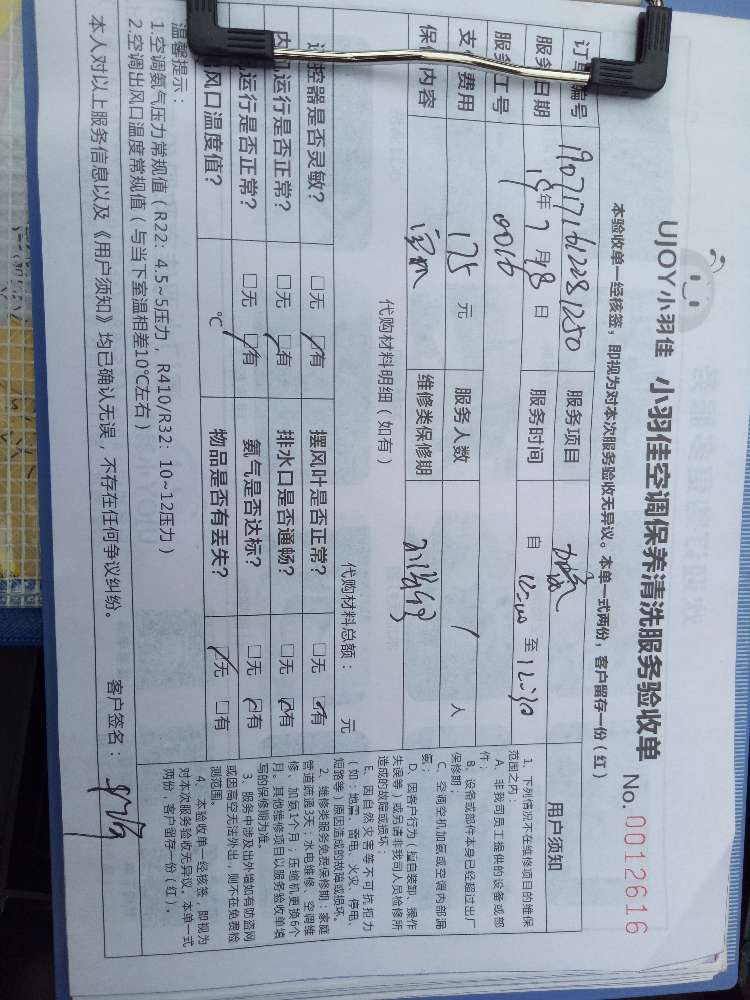 UJOY小羽佳 小羽佳空调保养清洗服务验收单 No.0012616
本验收单一经核签，即视为对本次服务验收无异议。本单一式两份，客户留存一份（红）
订单编号 服务项目 加氟
服务日期 年7月18日 服务时间 自 至12:30
服务工号 0016
支付费用 175元 服务人数 1人
保修内容 维修类保修期
代购材料明细（如有） 代购材料总额： 元
遥控器是否灵敏？ □无 □有 摆风叶是否正常？ □无 □有
内机运行是否正常？ □无 □有 排水口是否通畅？ □无 □有
机运行是否正常？ □无 □有 氨气是否达标？ □无 □有
风口温度值？ ℃ 物品是否有丢失？ □无 □有
温馨提示：
1.空调氨气压力常规值（R22：4.5~5压力，R410/R32：10~12压力）
2.空调出风口温度常规值（与当下室温相差10℃左右）
本人对以上服务信息以及《用户须知》均已确认无误，不存在任何争议纠纷。 客户签名：
用户须知
1、下列情况不在维修项目的维保
范围之内：
A、非我司员工提供的设备或部
件；
B、设备或部件本身已经超过出厂
保修期；
C、空调空机加氨或空调内部漏
氨；
D、因客户行为（擅自装卸、操作
失误等）或另请非我司人员检修所
造成的故障或损坏；
E、因自然灾害等不可抗拒力
（如：地震、雷电、火灾、停电、
短路等）原因造成的故障或损坏。
2、维修类服务免费保修期：家庭
管道疏通3天；水电维修、空调维
修、加氨1个月；压缩机更换6个
月。其他维修项目以服务验收单填
写的保修期为准。
3、服务中涉及出外墙如有防盗网
或因高空无法外出，则不在免费检
测范围。
4、本验收单一经核签，即视为
对本次服务验收无异议。本单一式
两份，客户留存一份（红）。